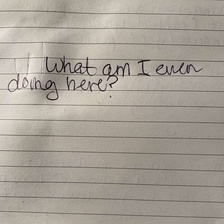 What am I even
doing here?